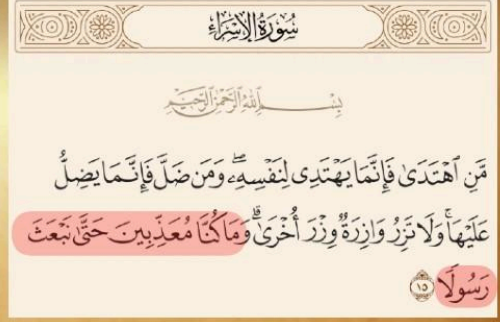 سُورَةُ الإِسْرَاءِ
بِسْمِ اللَّهِ الرَّحْمَٰنِ الرَّحِيمِ
مَّنِ ٱهْتَدَىٰ فَإِنَّمَا يَهْتَدِى لِنَفْسِهِۦ ۖ وَمَن ضَلَّ فَإِنَّمَا يَضِلُّ
عَلَيْهَا ۚ وَلَا تَزِرُ وَازِرَةٌ وِزْرَ أُخْرَىٰ ۗ وَمَا كُنَّا مُعَذِّبِينَ حَتَّىٰ نَبْعَثَ
رَسُولًا ١٥